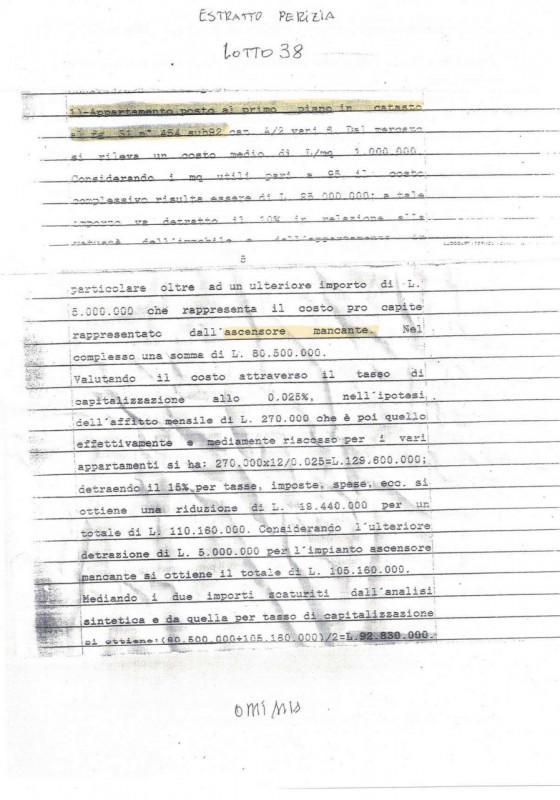 ESTRATTO PERIZIA
LOTTO 38
1)-Appartamento posto al primo piano in catasto
al Fg. 31 n° 454 sub92 cat. A/2 vani 5. Dal mercato
si rileva un costo medio di L/mq 1.000.000.
Considerando i mq utili pari a 95 il costo
complessivo risulta essere di L. 95.000.000; a tale
importo va detratto il 10% in relazione alla
vetustà dell'immobile e dell'appartamento in
5
particolare oltre ad un ulteriore importo di L.
5.000.000 che rappresenta il costo pro capite
rappresentato dall'ascensore mancante. Nel
complesso una somma di L. 80.500.000.
Valutando il costo attraverso il tasso di
capitalizzazione allo 0.025%, nell'ipotesi
dell'affitto mensile di L. 270.000 che è poi quello
effettivamente e mediamente riscosso per i vari
appartamenti si ha: 270.000x12/0.025=L.129.600.000;
detraendo il 15% per tasse, imposte, spese, ecc. si
ottiene una riduzione di L. 19.440.000 per un
totale di L. 110.160.000. Considerando l'ulteriore
detrazione di L. 5.000.000 per l'impianto ascensore
mancante si ottiene il totale di L. 105.160.000.
Mediando i due importi scaturiti dall'analisi
sintetica e da quella per tasso di capitalizzazione
si ottiene:(80.500.000+105.160.000)/2=L.92.830.000.
OMISSIS